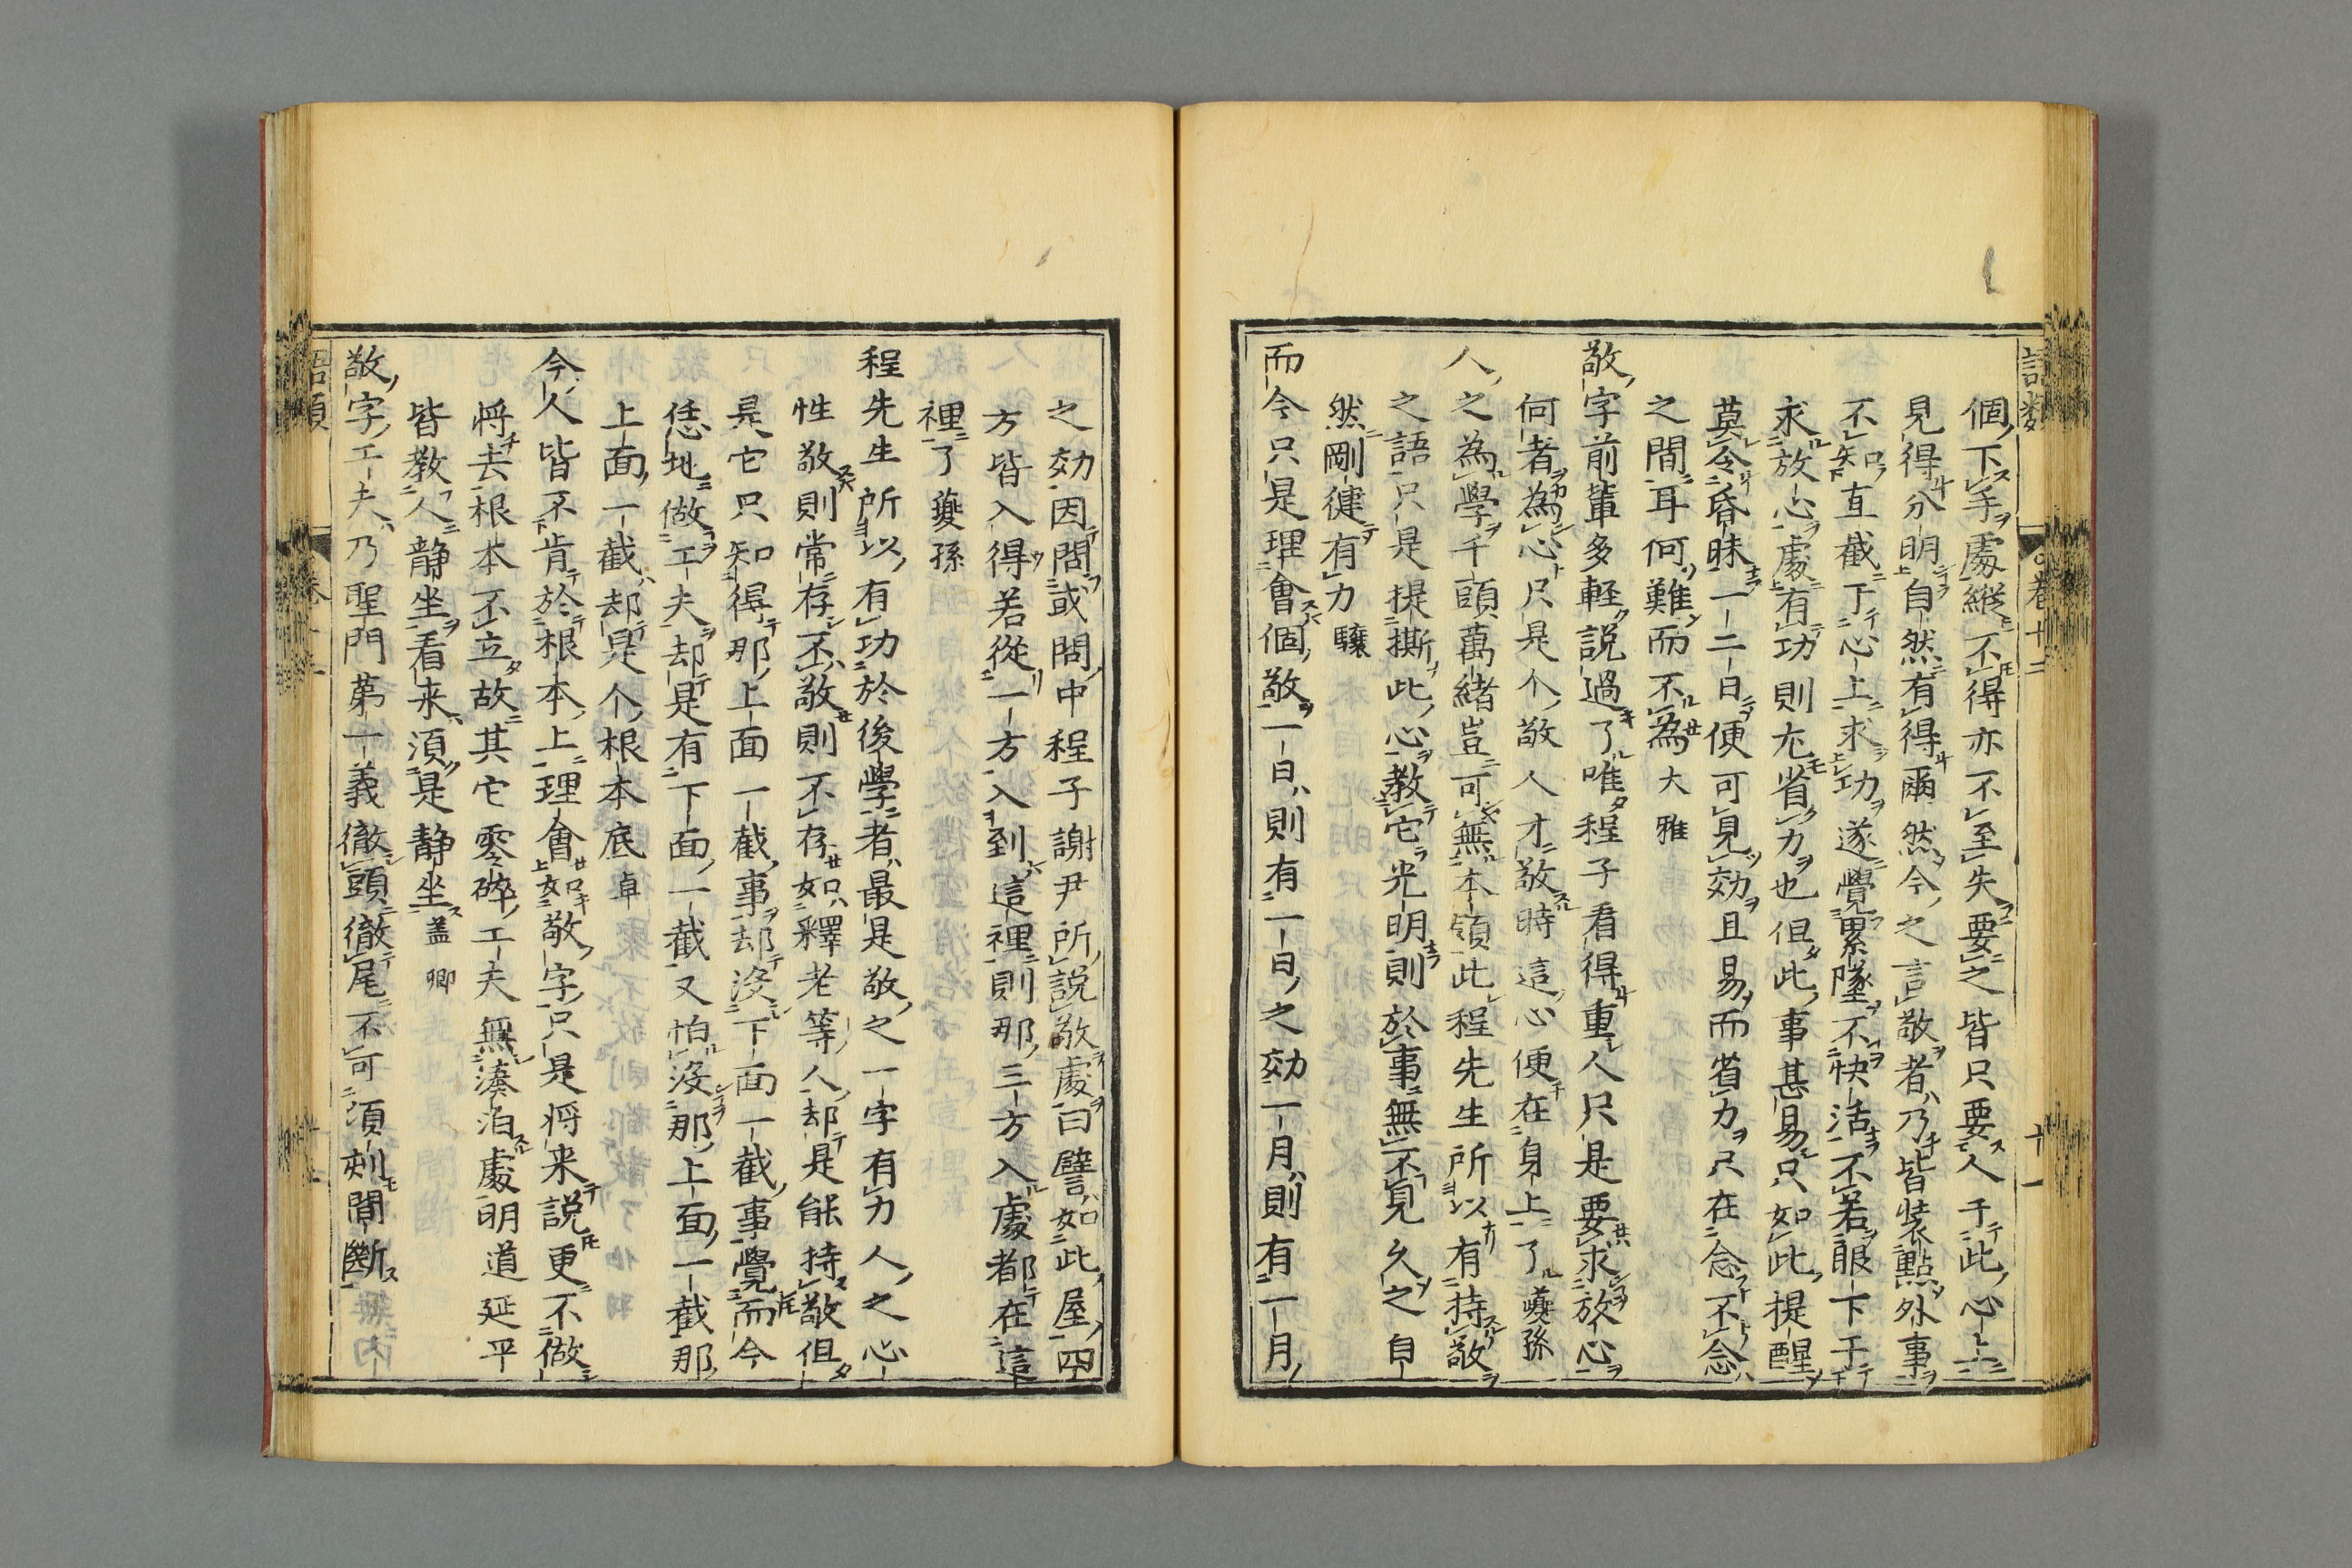 語類
卷十二
十一
個下手處縱不得亦不至失要之皆只要人于此心上
見得分明自然有得爾然今之言敬者乃皆裝點外事
不知直截下心上求功遂覺累墜不快活不若眼下于
求放心處有功則尤省力也但此事甚易只如此提醒
莫令昏昧一二日便可見効且易而省力只在念不念
之間耳何難而不為大雅
敬字前輩多軽説過了唯程子看得重人只是要求放心
何者為心只是个敬人才敬時這心便在身上了夔孫
人之為學千頭萬緒豈可無本領此程先生所以有持敬
之語只是提撕此心教它光明則於事無不見久之自
然剛健有力驤
而今只是理會個敬一日則有一日之効一月則有一月
之効因問或問中程子謝尹所説敬處曰譬如此屋四
方皆入得若從一方入到這裡則那三方入處都在這
裡了夔孫
程先生所以有功於後學者最是敬之一字有力人之心
性敬則常存不敬則不存如釋老等人却是能持敬但
是它只知得那上面一截事却没下面一截事覺而今
恁地做工夫却是有下面一截又怕没那上面一截那
上面一截却是个根本底卓
今人皆不肯於根本上理會如敬字只是将来説更不做
将去根本不立故其它零碎工夫無湊泊處明道延平
皆教人静坐看来湏是静坐蓋卿
敬字工夫乃聖門第一義徹頭徹尾不可湏刻間斷
語類